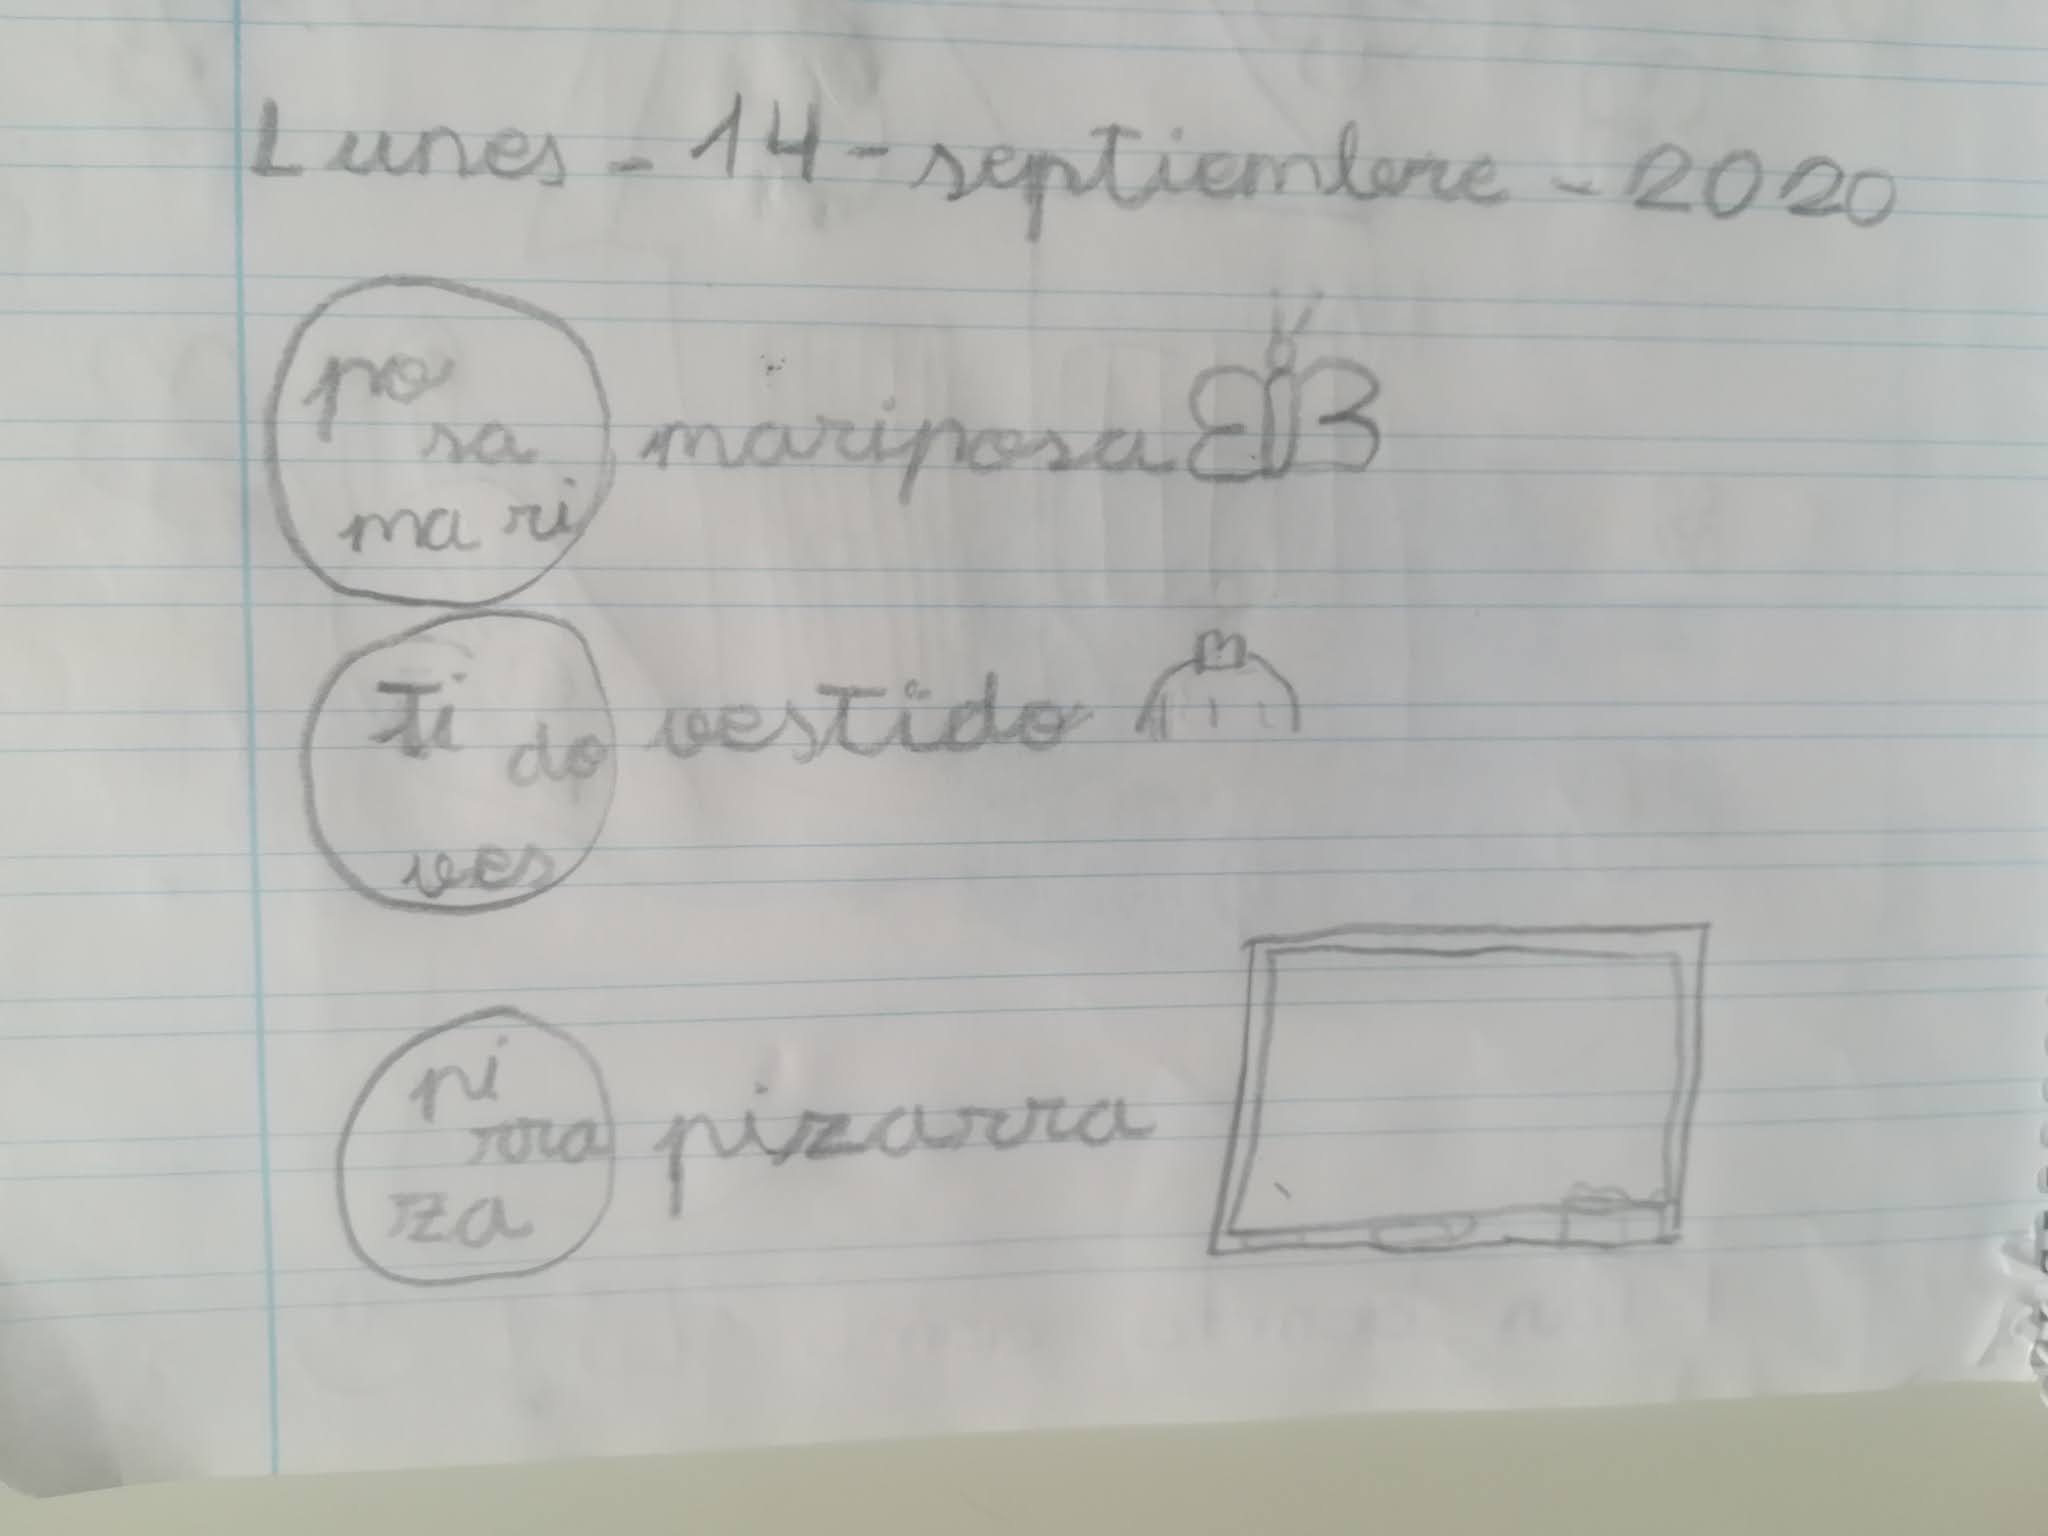 Lunes - 14 - septiembre - 2020
po
sa
ma ri
mariposa
ti
do
ves
vestido
pi
rra
za
pizarra